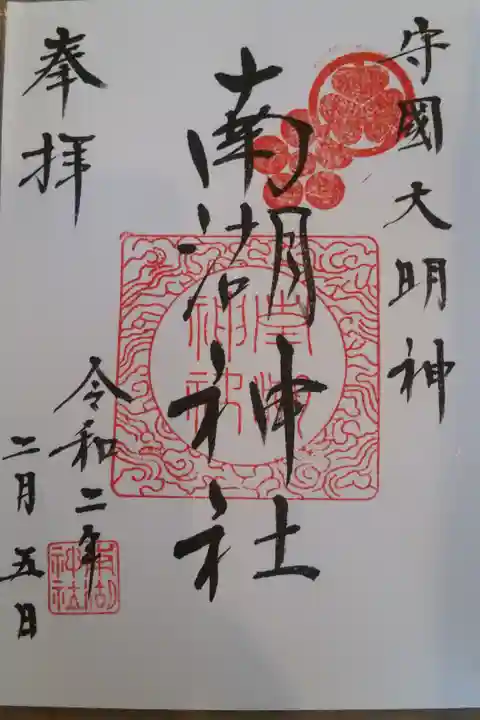 守國大明神
南湖神社
奉拝
令和二年
二月五日
南湖神社
南湖神社